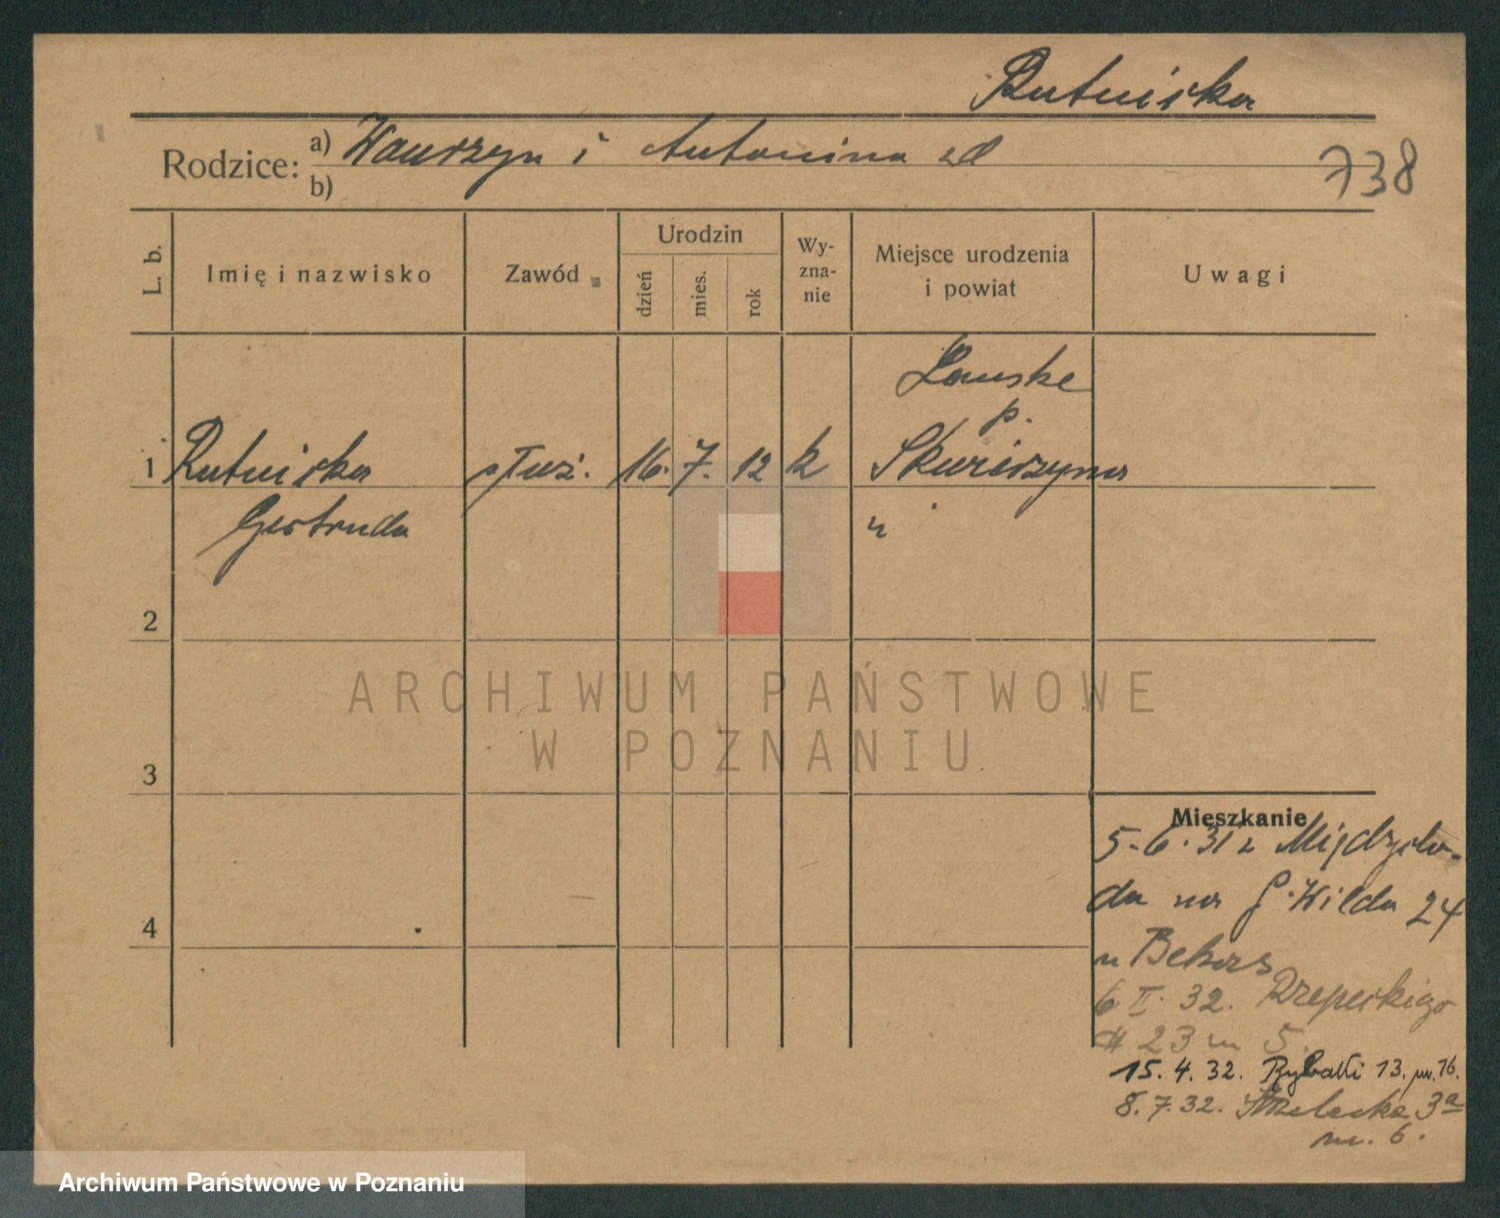 Rutnicka
Rodzice: a) Wawrzyn i Antonina zd
b)
738
L. b. Imię i nazwisko Zawód Urodzin dzień mies. rok Wy-zna-nie Miejsce urodzenia i powiat Uwagi
Lauske
p.
1 Rutnicka służ. 16. 7. 12 k Skwierzyna
Gertruda
2
ARCHIWUM PAŃSTWOWE
W POZNANIU
3
Mieszkanie
5.6.31 z Międzycho-
da na G. Wilda 24
u Bekas
4
6 II. 32. Rzepeckiego
23 m 5.
15. 4. 32. Rybaki 13. m. 16.
8. 7. 32. Strzelecka 3a
m. 6.
Archiwum Państwowe w Poznaniu